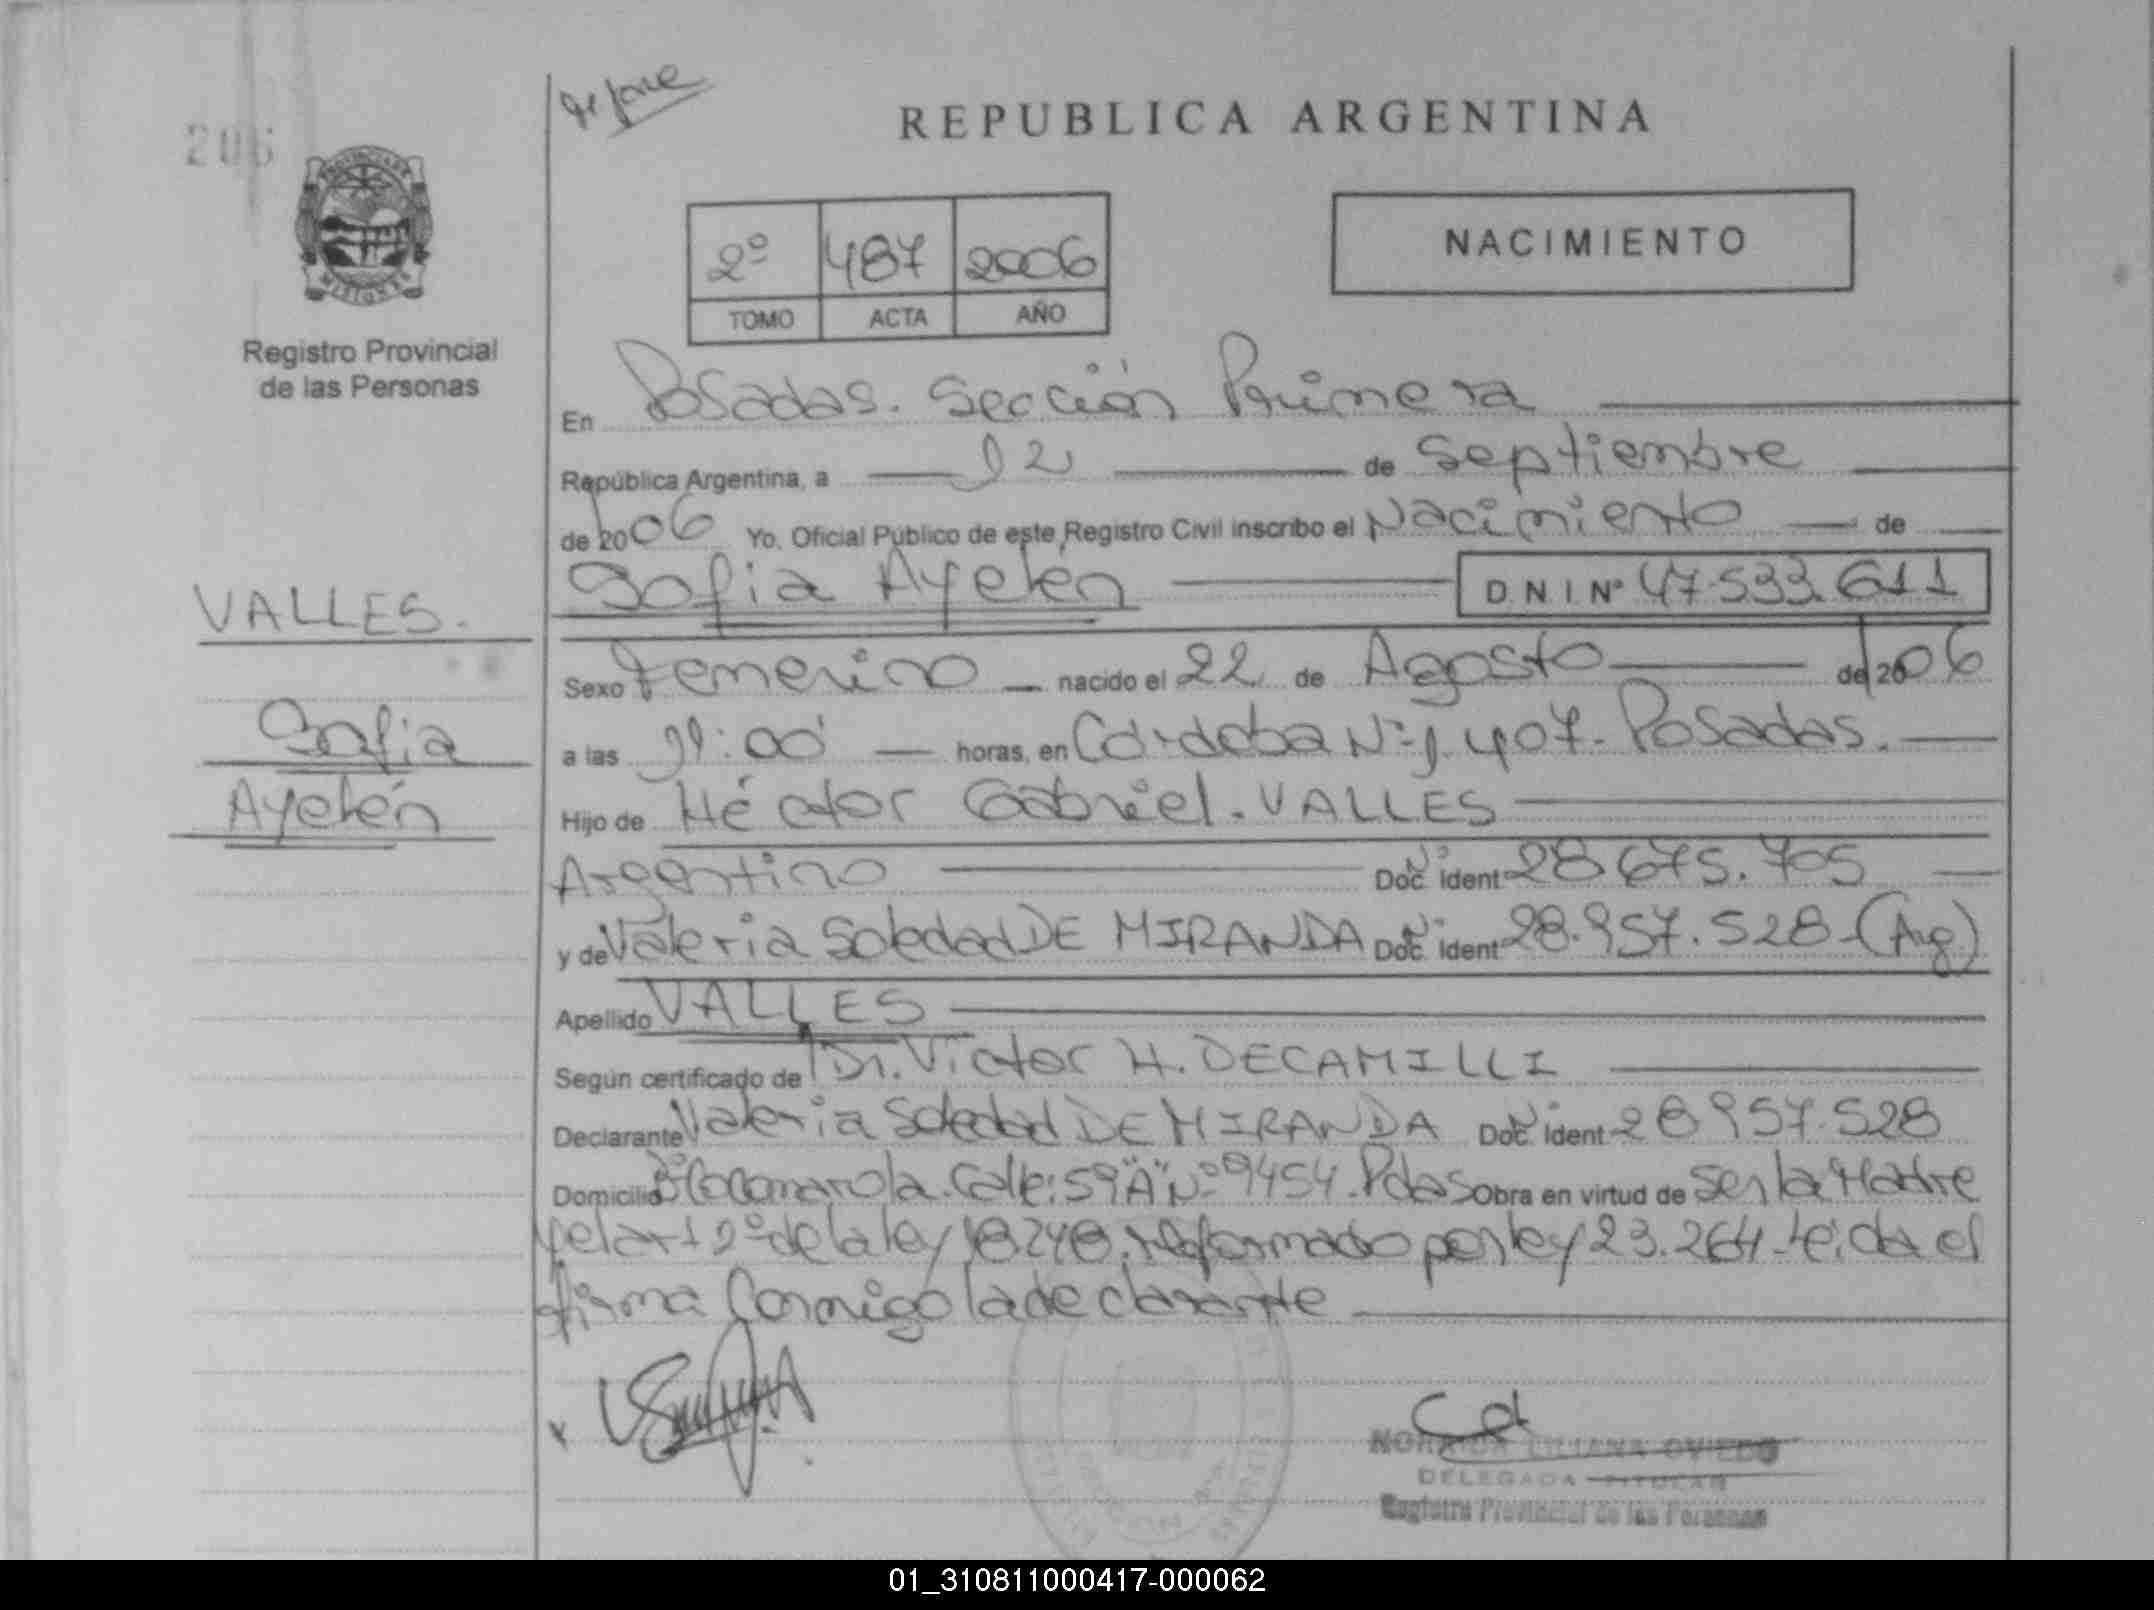 206
REPUBLICA ARGENTINA
PROVINCIA DE
MISIONES
2º 487 2006
TOMO ACTA AÑO
NACIMIENTO
Registro Provincial
de las Personas
En Posadas. Sección Primera
República Argentina, a 12 de Septiembre
de 2006 Yo, Oficial Público de este Registro Civil inscribo el Nacimiento de
Sofia Ayelén D.N.I. Nº 47.533.611
VALLES.
Sofia
Ayelén
Sexo femenino nacido el 22 de Agosto de 2006
a las :00 horas, en Córdoba Nº 1.407. Posadas.
Hijo de Héctor Gabriel. VALLES
Argentino Doc. Nº ident 28.675.705
y de Valeria Soledad DE MIRANDA Doc. Nº ident 28.957.528 (Arg)
Apellido VALLES
Según certificado de Dr. Victor H. DECAMILLI
Declarante Valeria Soledad DE MIRANDA Doc. Nº ident 28957.528
Domicilio Bº Cocomarola. Calle: 59 "A" Nº 9454. Pdas Obra en virtud de ser la Madre
de la ley 18.248. reformado por ley 23.264. leída el
firma conmigo la declarante
x
LILIANA OVIEDO
DELEGADA TITULAR
Registro Provincial de las Personas
01_310811000417-000062